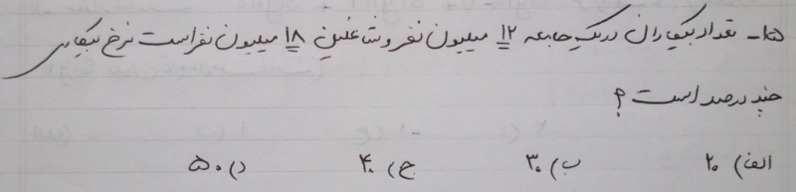 ۱۵- تعداد بیکاران در یک جامعه ۱۲ میلیون نفر و شاغلین ۱۸ میلیون نفر است نرخ بیکاری
چند درصد است ؟
الف) ۲۰ ب) ۳۰ ج) ۴۰ د) ۵۰